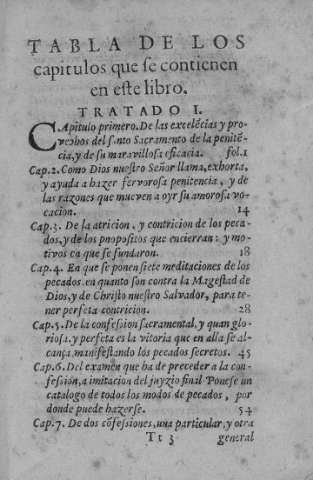 TABLA DE LOS
capitulos que se contienen
en este libro.
TRATADO I.
CApitulo primero. De las excelẽcias y pro-
vechos del santo Sacramento de la penitẽ-
cia, y de su maravillosa eficacia. fol.1
Cap.2. Como Dios nuestro Señor llama, exhorta,
y ayuda a hazer fervorosa penitencia, y de
las razones que mueven a oyr su amorosa vo-
cacion. 14
Cap.3. De la atricion, y contricion de los peca-
dos, y de los propositos que encierran: y mo-
tivos en que se fundaron. 18
Cap.4. En que se ponen siete meditaciones de los
pecados. en quanto son contra la Magestad de
Dios, y de Christo nuestro Salvador, para te-
ner perfeta contricion. 28
Cap.5. De la confession sacramental, y quan glo-
riosa, y perfeta es la vitoria que en ella se al-
cança, manifestando los pecados secretos. 45
Cap.6. Del examen que ha de preceder a la con-
fessiõ, a imitacion del juyzio final Ponese un
catalogo de todos los modos de pecados, por
donde puede hazerse. 54
Cap.7. De dos cõfessiones, una particular, y otra
Tt 3 general